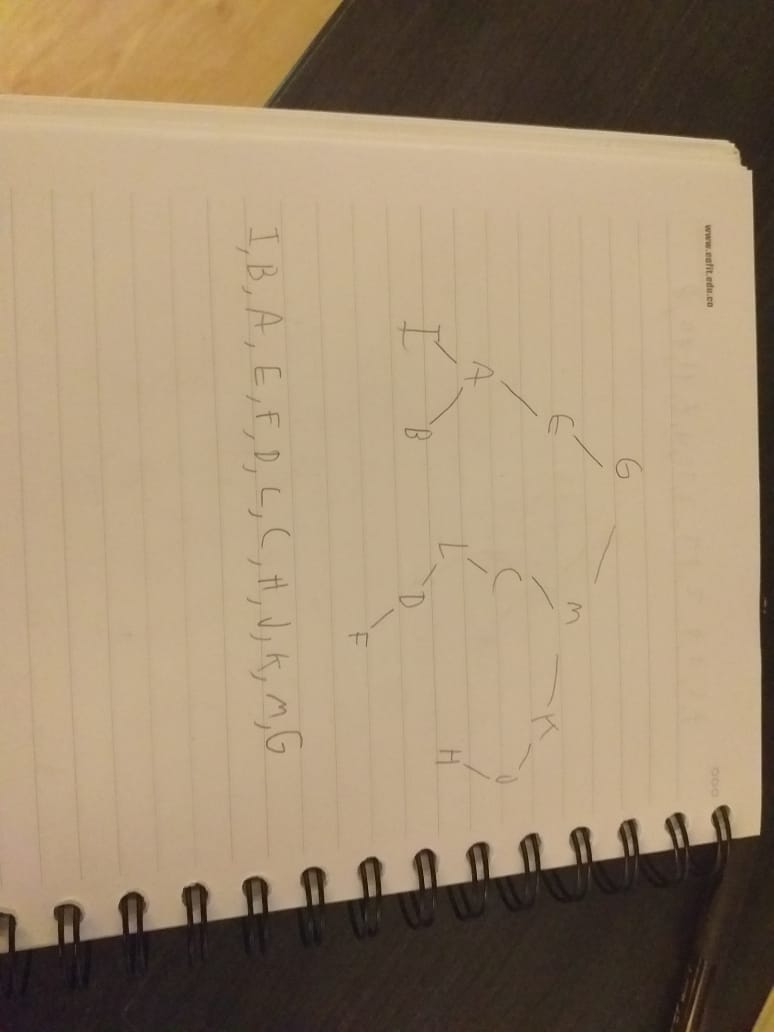 www.eafit.edu.co
G
E m K
A C J
I B L H
D
F
I, B, A, E, F, D, L, C, H, J, K, m, G